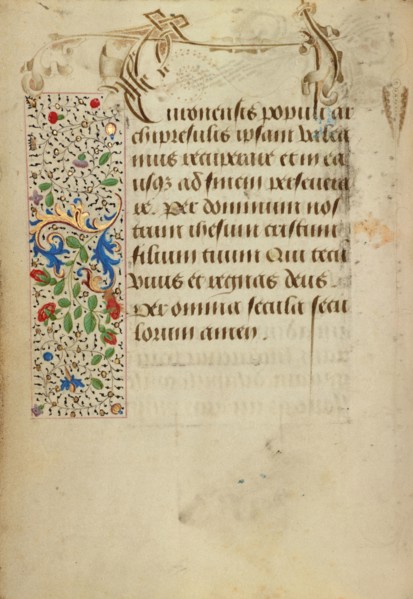 Turonensis populi ar
chipresulis ipsam valea
mus recuperare et in ea
usq3 ad finem persevera
re. Per dominum nos
trum ihesum cristum
filium tuum Qui tecū
viuis et regnas deus.
Per omnia secula secu
lorum amen.